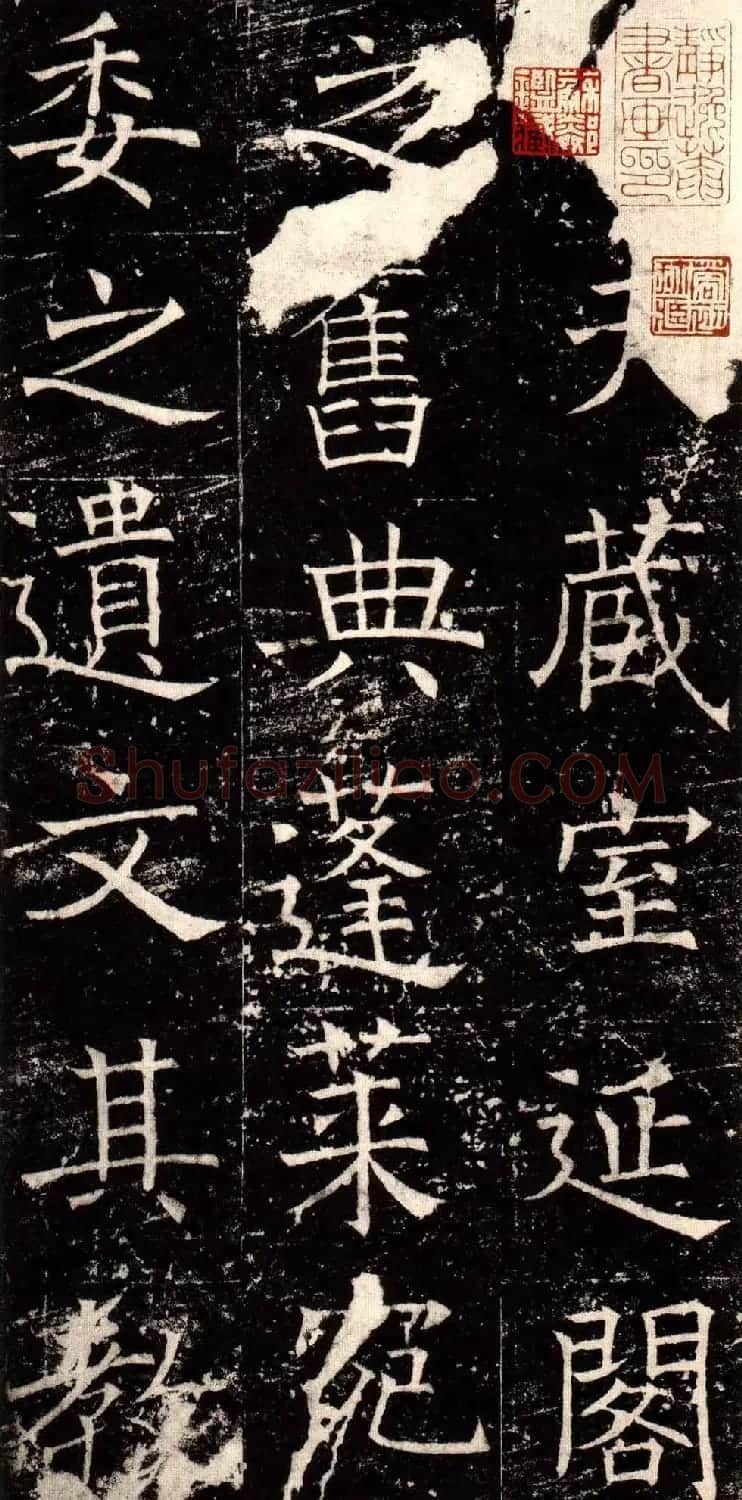 藏室延閣
之舊典蓬萊宛
委之遺文其教
Shufaziliao.COM